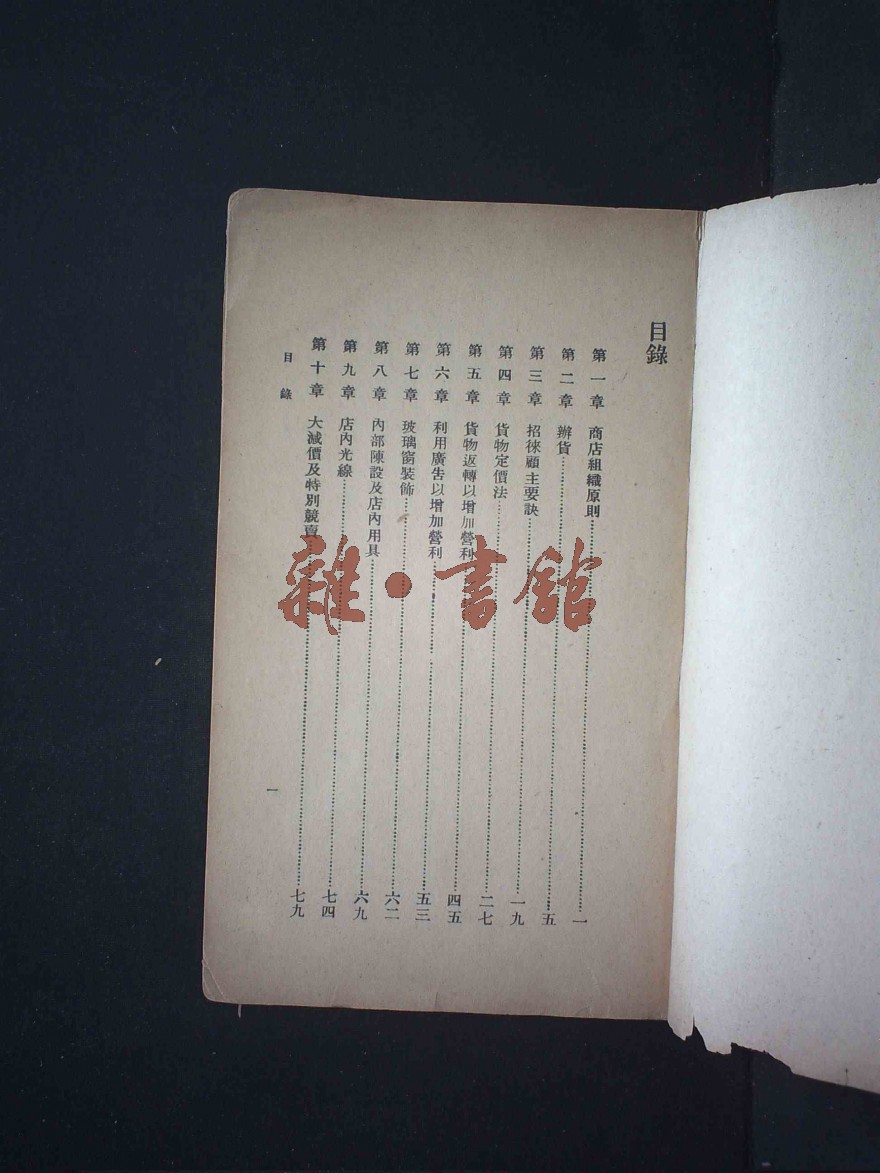 目錄
第一章 商店組織原則……一
第二章 辦貨……五
第三章 招徠顧主要訣……一九
第四章 貨物定價法……二七
第五章 貨物返轉以增加營利……四五
第六章 利用廣告以增加營利……五三
第七章 玻璃窗裝飾……六二
第八章 內部陳設及店內用具……六九
第九章 店內光線……七四
第十章 大減價及特別競賣……七九
目錄
一
雜·書館